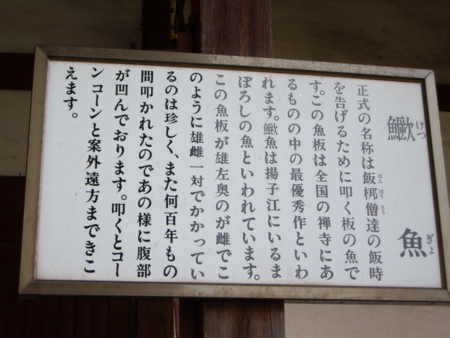 鱖魚
けつ ぎょ
正式の名称は飯梆僧達の飯時
はん ほう
を告げるために叩く板の魚で
す。この魚板は全国の禅寺にあ
るものの中の最優秀作といわ
れます。鱖魚は揚子江にいるま
ぼろしの魚といわれています。
この魚板が雄左奥のが雌でこ
のように雄雌一対でかかってい
るのは珍しく、また何百年もの
間叩かれたのであの様に腹部
が凹んでおります。叩くとコー
ンコーンと案外遠方まできこ
えます。